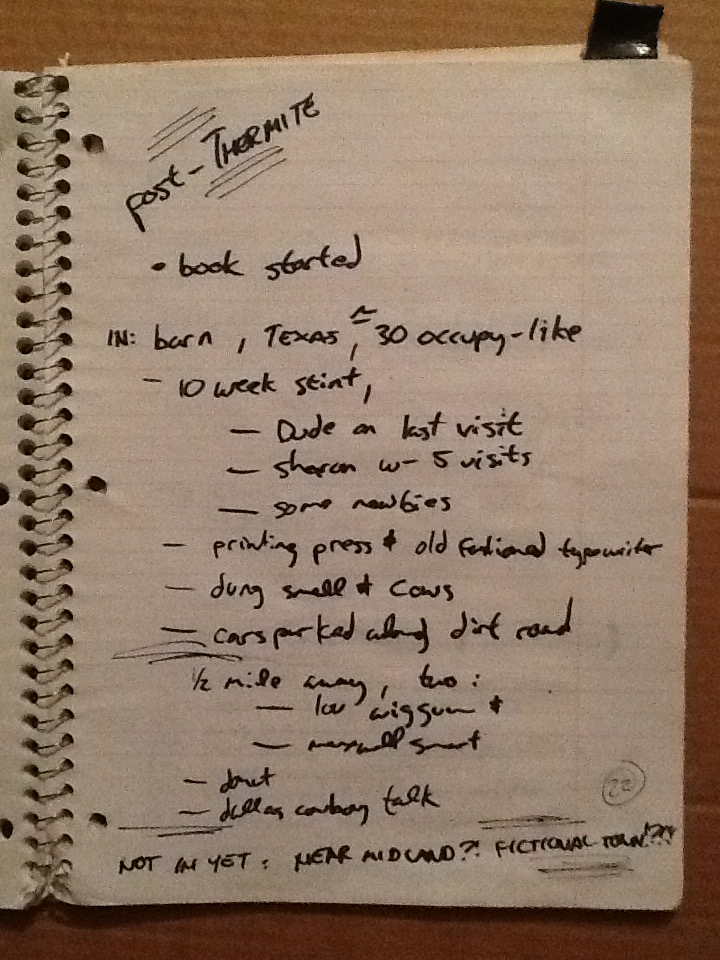 post-THERMITE
• book started
IN: barn, TEXAS, ≈ 30 occupy-like
– 10 week stint,
– Dude on last visit
– sharon w– 5 visits
– some newbies
– printing press & old fashioned typewriter
– dung smell & cows
– cars parked along dirt road
½ mile away, two:
– lou wiggum &
– maxwell smart
– donut
– dallas cowboy talk
22
NOT IN YET: NEAR MIDLAND?! FICTIONAL TOWN!?!?